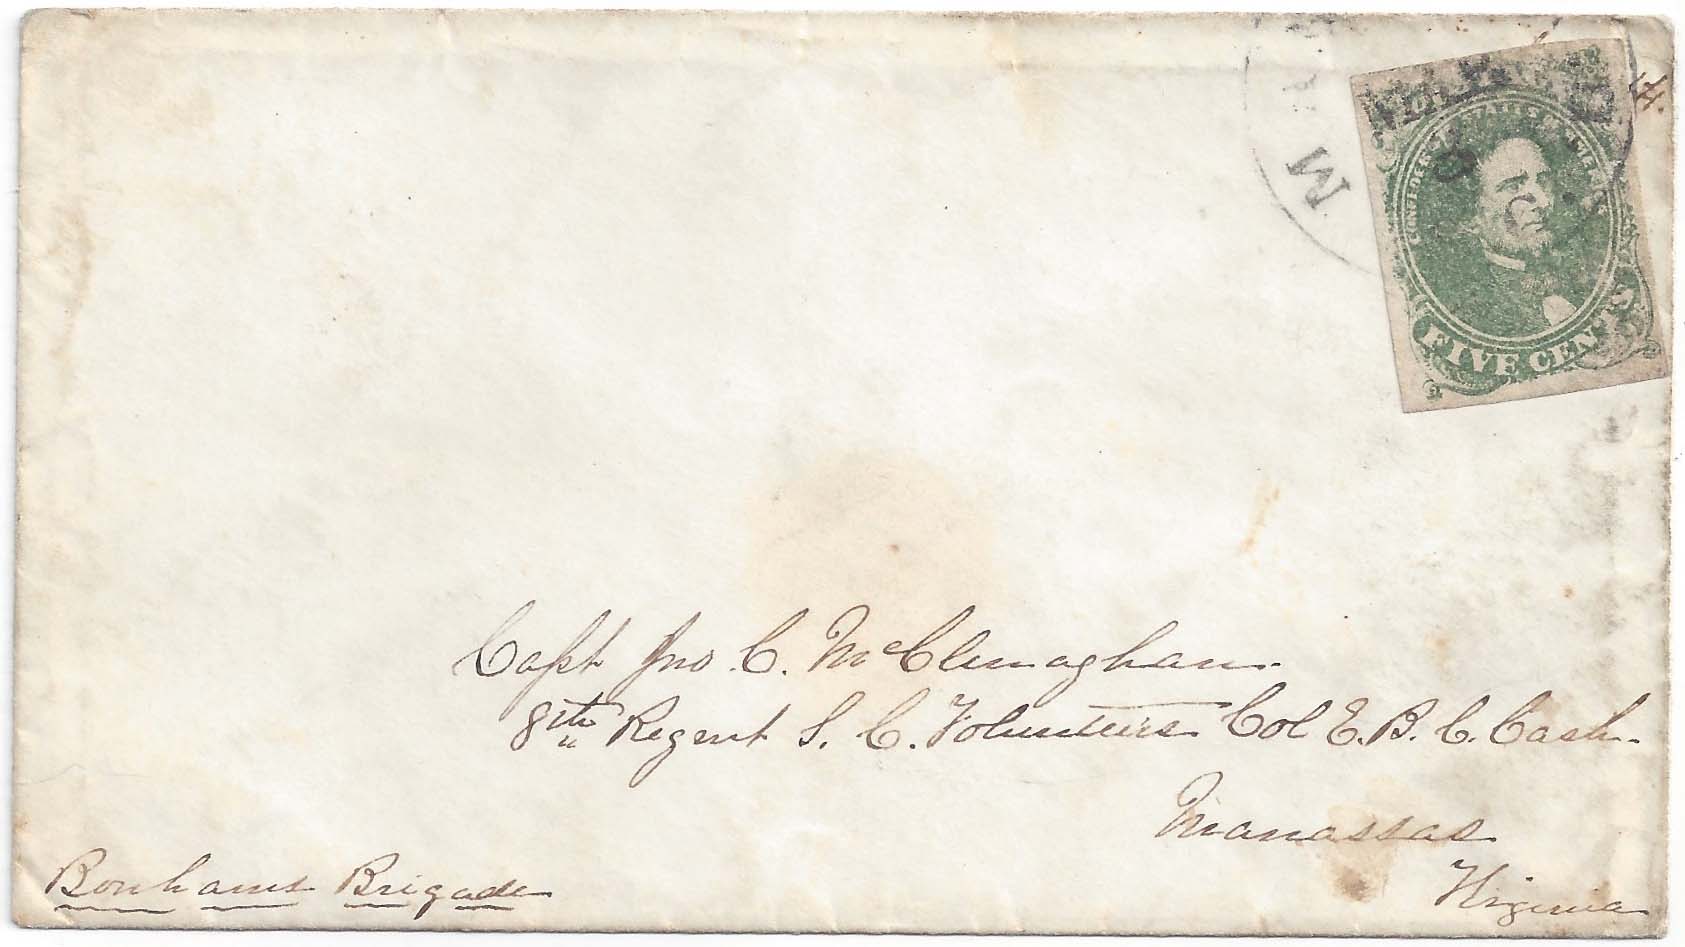 CONFEDERATE STATES OF AMERICA
FIVE CENTS
Capt Jno C. McClenaghan.
8th Regent S. C. Volunteers Col E. B. C. Cash.
Manassas
Virginia
Bonhams Brigade